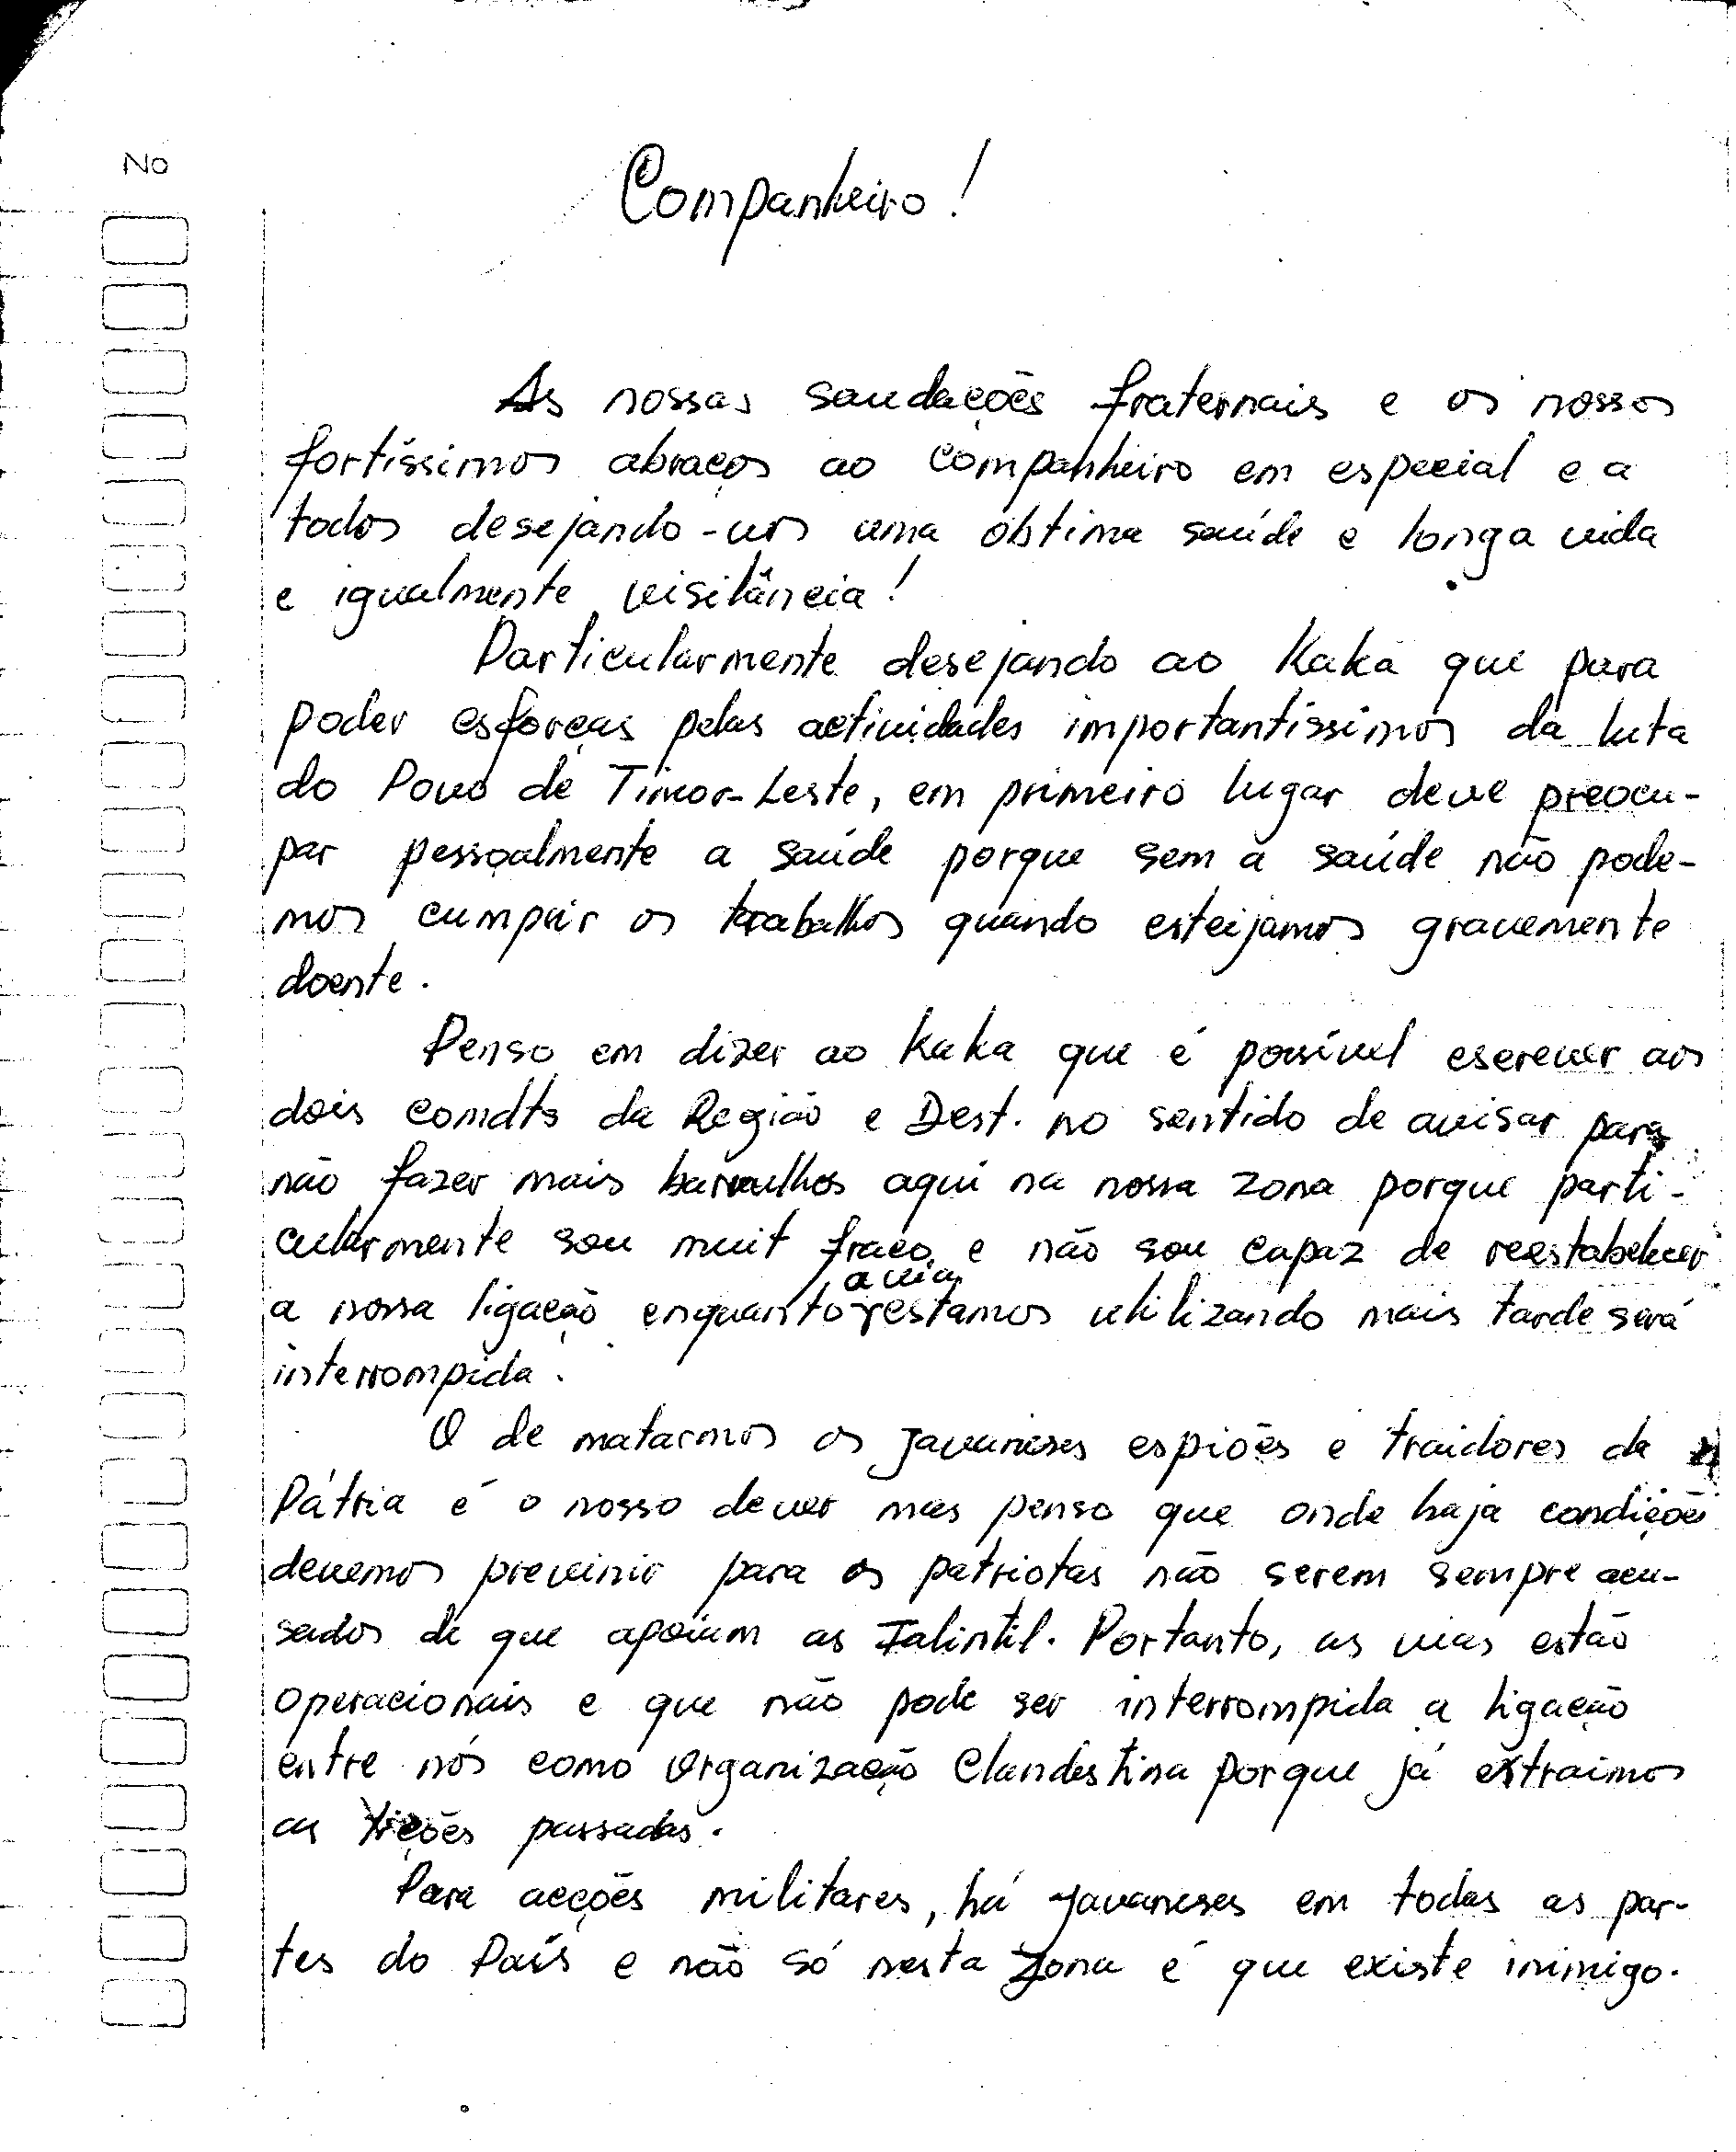 No
Companheiro!
As nossas saudações fraternais e os nossos
fortíssimos abraços ao companheiro em especial e a
todos desejando-vos uma óbtima saúde e longa vida
e igualmente visilância!
Particularmente desejando ao Kaka que para
poder esforças pelas actividades importantíssimos da luta
do Povo de Timor-Leste, em primeiro lugar deve preocu-
par pessoalmente a saúde porque sem a saúde não pode-
mos cumprir os trabalhos quando esteijamos gravemente
doente.
Penso em dizer ao Kaka que é possível escrever aos
dois comdts da Região e Dest. no sentido de avisar para
não fazer mais barulhos aqui na nossa zona porque parti-
cularmente sou muit fraco e não sou capaz de reestabelecer
a nossa ligação enquanto a via estamos utilizando mais tarde será
interrompida.
O de matarmos os javaneses espiões e traidores da
Pátria é o nosso dever mas penso que onde haja condições
devemos previnir para os patriotas não serem sempre acu-
sados de que apoiam as Falintil. Portanto, as vias estão
operacionais e que não pode ser interrompida a ligação
entre nós como Organização Clandestina porque já extraimos
as lições passadas.
Para acções militares, há javaneses em todas as par-
tes do País e não só nesta zona é que existe inimigo.